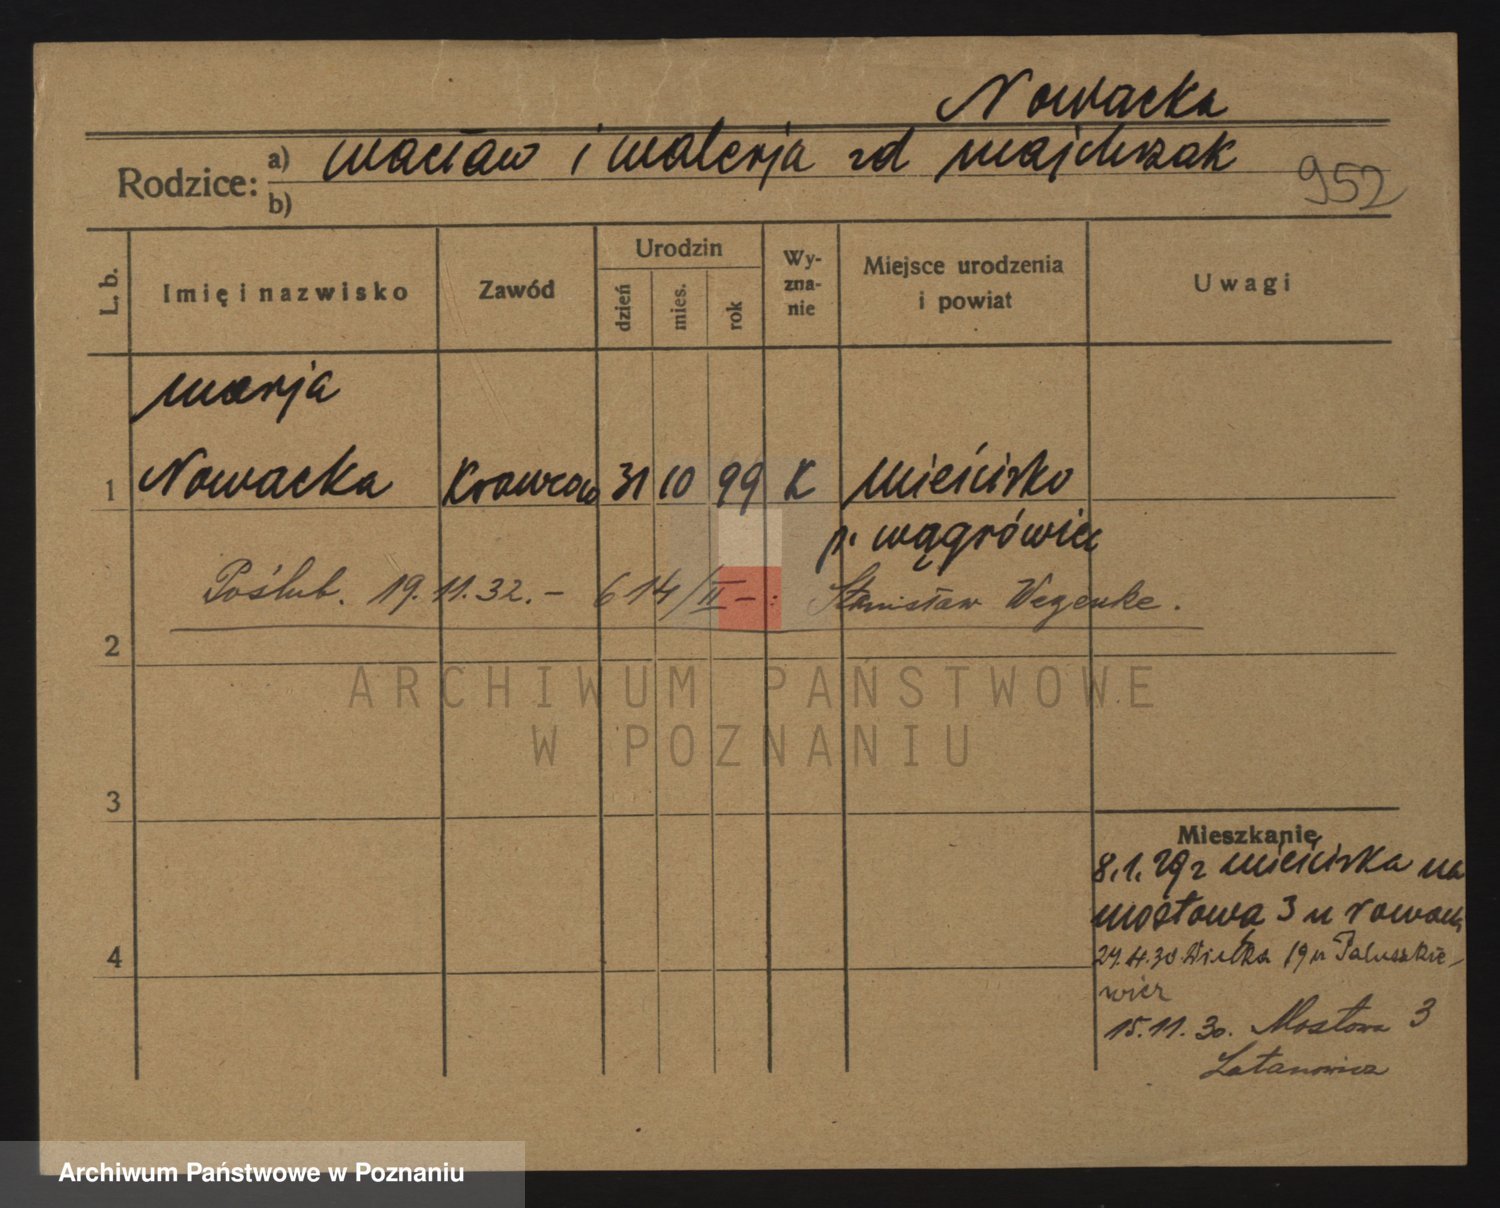 Nowacka
Rodzice: a) Wacław i Walerja zd Majchrzak
b)
952
L. b.
Imię i nazwisko
Zawód
Urodzin
dzień
mies.
rok
Wy-
zna-
nie
Miejsce urodzenia
i powiat
Uwagi
Marja
1 Nowacka Krawcow 31 10 99 K Mieścisko
p. Wągrówiec
Poślub. 19.11.32. – 614/II – : Stanisław Wegenke.
2
ARCHIWUM PAŃSTWOWE
W POZNANIU
3
Mieszkanie
8.1.29 z Mieściska na
Mostowa 3 u Nowack
4
24.4.30 Wielka 19 u Paluszkie-
wicz
15.11.30. Mostowa 3
Latanowicz
Archiwum Państwowe w Poznaniu